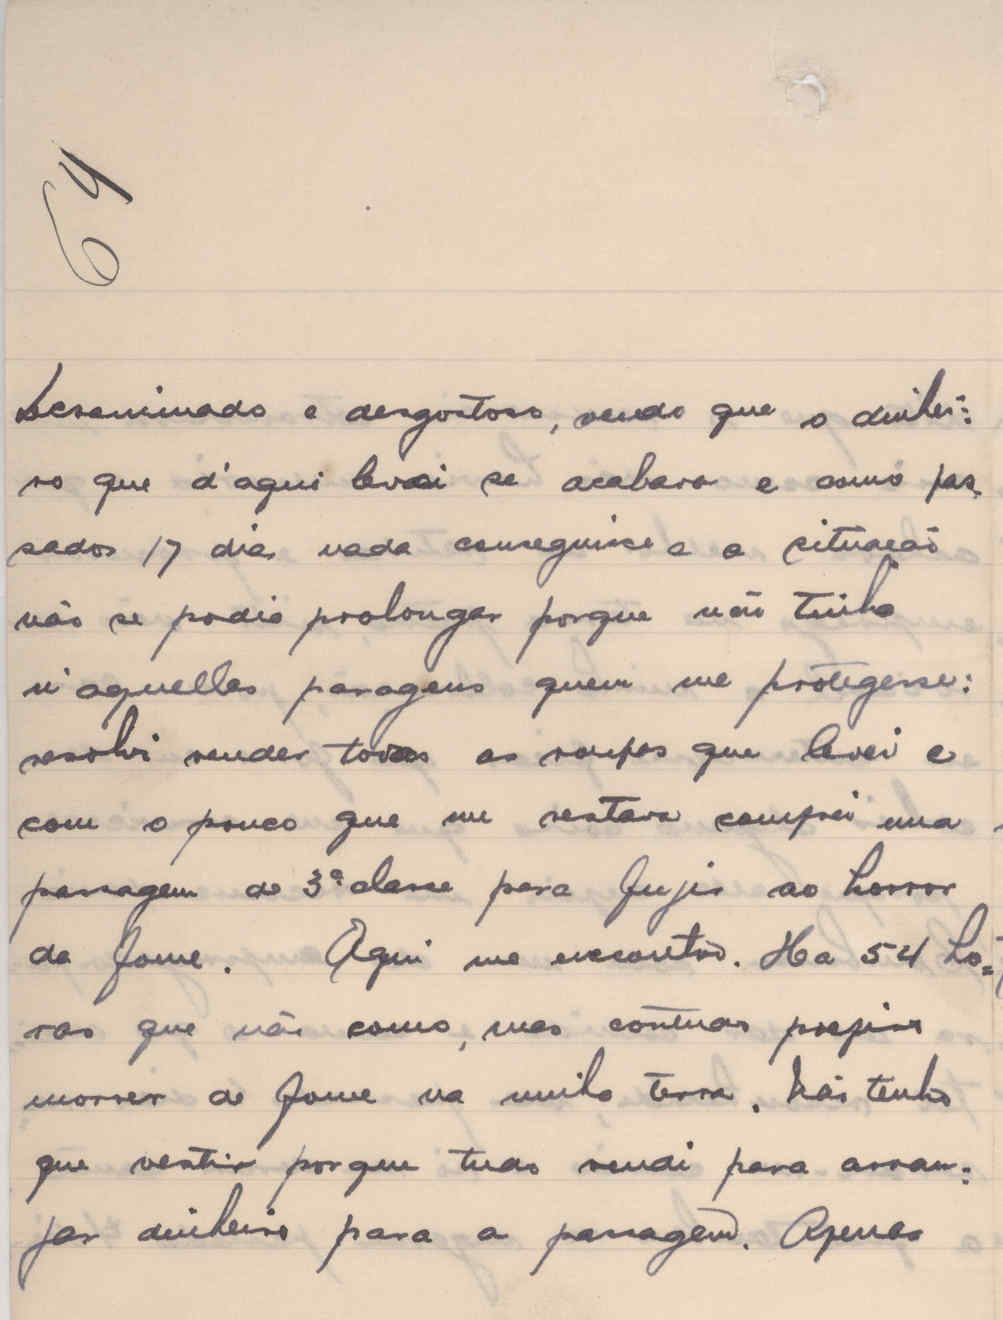 64
Desanimado e desgostoso, vendo que o dinhei=
ro que d'aqui levei se acabara e como pas=
sados 17 dias nada conseguisse e a situação
não se podia prolongar porque não tinha
n'aquelles paragens quem me protegesse:
resolvi vender todas as roupas que levei e
com o pouco que me restava comprei uma
passagem de 3ª classe para fujir ao horror
da fome. Aqui me encontro. Ha 54 ho=
ras que não como, mas
morrer de fome na minha terra. Não tenho
que vestir porque tudo vendi para arran=
jar dinheiro para a passagem. Apenas